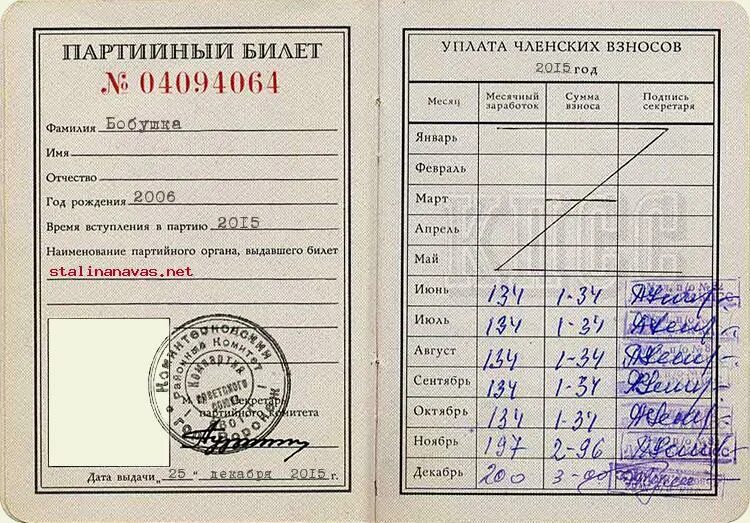 ПАРТИЙНЫЙ БИЛЕТ
№ 04094064
Фамилия Бобушка
Имя
Отчество
Год рождения 2006
Время вступления в партию 2015
Наименование партийного органа, выдавшего билет
stalinanavas.net
Районный Комитет
Компартия
Советского
Союза
М П Секретарь
партийного комитета
Дата выдачи „25" декабря 2015 г.
УПЛАТА ЧЛЕНСКИХ ВЗНОСОВ
2015 год
Месяц Месячный заработок Сумма взноса Подпись секретаря
КПСС
Январь
Февраль
Март
Апрель
Май
Июнь 134 1-34
Июль 134 1-34
Август 134 1-34
Сентябрь 134 1-34
Октябрь 134 1-34
Ноябрь 197 2-96
Декабрь 200